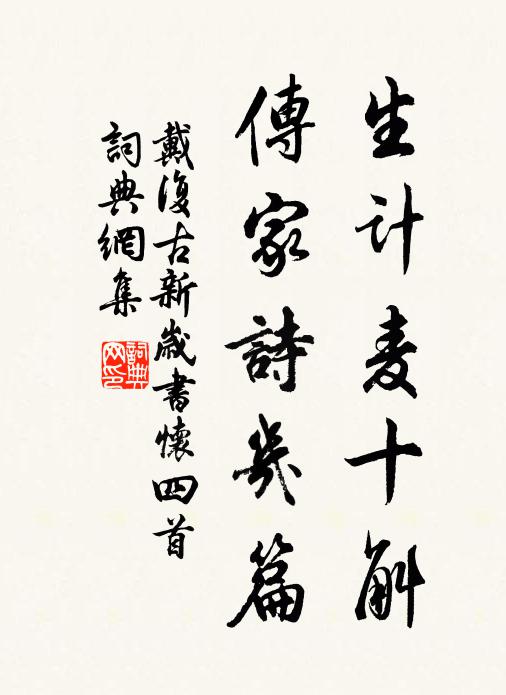 生计麦十斛
傳家詩幾篇
戴復古新歲書懷四首
詞典網集
詞典网印